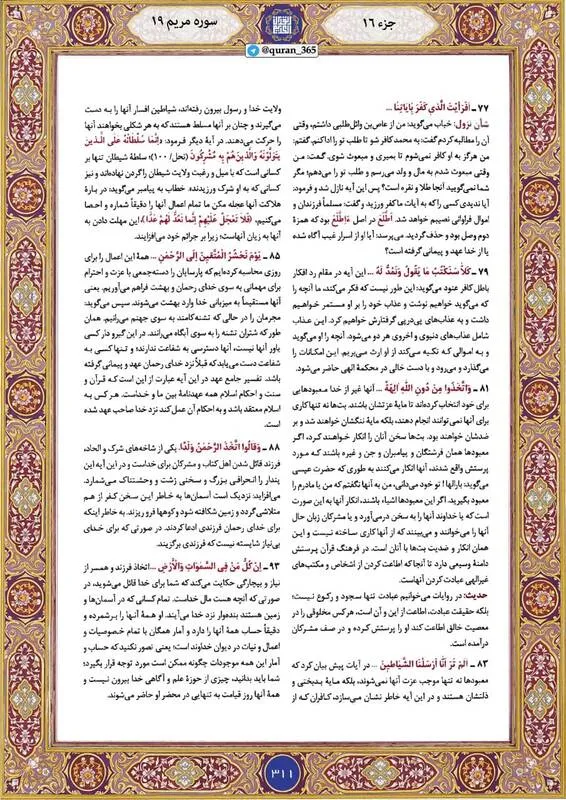 جزء ۱۶
سوره مریم ۱۹
@quran_365
۷۷ ـ اَفَرَأَیْتَ الَّذِي كَفَرَ بِآيَاتِنَا ...
شأن نزول: خباب می‌گوید: من از عاص‌بن وائل‌طلبی داشتم، وقتی
آن را مطالبه کردم گفت: به محمد کافر شو تا طلب تو را اداکنم. گفتم:
من هرگز به او کافر نمی‌شوم تا بمیری و مبعوث شوی. گفت: من
وقتی مبعوث شدم به مال و ولد می‌رسم و طلب تو را می‌دهم؛ مگر
شما نمی‌گویید آنجا طلا و نقره است؟ پس این آیه نازل شد و فرمود:
آیا ندیدی کسی را که به آیات ما کفر ورزید، و گفت: مسلماً فرزندان و
اموال فراوانی نصیبم خواهد شد. أطَّلَعَ در اصل ءَاِطَّلَعَ بود که همزهٔ
دوم وصل بود و حذف گردید. می‌پرسد: آیا او از اسرار غیب آگاه شده
یا از خدا عهد و پیمانی گرفته است؟
۷۹ ـ كَلَّا سَنَكْتُبُ مَا يَقُولُ وَنَمُدُّ لَهُ ... این آیه در مقام رد افکار
باطل کافر عنود می‌گوید: این طور نیست که فکر می‌کند، ما آنچه را
که می‌گوید خواهیم نوشت و عذاب خود را بر او مستمر خواهیم
داشت و به عذاب‌های پی‌درپی گرفتارش خواهیم کرد. این عذاب
شامل عذاب‌های دنیوی و اخروی هر دو می‌شود. آنچه را او می‌گوید
و به اموالی که تکیه می‌کند از او ارث می‌بریم. این امکانات را
می‌گذارد و می‌رود و با دست خالی در محکمهٔ الهی حاضر می‌شود.
۸۱ ـ وَاتَّخَذُوا مِنْ دُونِ اللَّهِ آلِهَةً ... آنها غیر از خدا معبودهایی
برای خود انتخاب کرده‌اند تا مایهٔ عزّتشان باشند. بت‌ها نه تنها کاری
برای آنها نمی‌توانند انجام دهند، بلکه مایهٔ ننگشان خواهند شد و بر
ضدشان خواهند بود. بت‌ها سخن آنان را انکار خواهند کرد، اگر
معبودها همان فرشتگان و پیامبران و جن و غیره باشند که مورد
پرستش واقع شدند، آنها انکار می‌کنند به طوری که حضرت عیسی
می‌گوید: بارالها ! تو خود می‌دانی، من به آنها نگفتم که من یا مادرم را
معبود بگیرید. اگر این معبودها اشیاء باشند، انکار آنها به این صورت
است که یا خداوند آنها را به سخن درمی‌آورد و یا مشرکان زبان حال
آنها را می‌خوانند و می‌بینند که از آنها کاری ساخته نیست و این
همان انکار و ضدیت بت‌ها با آنان است. در فرهنگ قرآن پرستش
دامنهٔ وسیعی دارد تا آنجا که اطاعت کردن از اشخاص و مکتب‌های
غیرالهی عبادت کردن آنهاست.
حدیث: در روایات می‌خوانیم عبادت تنها سجود و رکوع نیست؛
بلکه حقیقت عبادت، اطاعت از این و آن است، هرکس مخلوقی را در
معصیت خالق اطاعت کند او را پرستش کرده و در صف مشرکان
درآمده است.
۸۳ ـ اَلَمْ تَرَ اَنَّا اَرْسَلْنَا الشَّيَاطِينَ ... در آیات پیش بیان کرد که
معبودها نه تنها موجب عزت آنها نمی‌شوند، بلکه مایهٔ بدبختی و
ذلتشان هستند و در این آیه خاطر نشان می‌سازد، کافران که از
ولایت خدا و رسول بیرون رفته‌اند، شیاطین افسار آنها را به دست
می‌گیرند و چنان بر آنها مسلط هستند که به هر شکلی بخواهند آنها
را حرکت می‌دهند. در آیهٔ دیگر فرمود: «إِنَّمَا سُلْطَانُهُ عَلَى الَّذِينَ
يَتَوَلَّوْنَهُ وَالَّذِينَ هُمْ بِهِ مُشْرِكُونَ (نحل/ ۱۰۰)؛ سلطهٔ شیطان تنها بر
کسانی است که با میل و رغبت ولایت شیطان را گردن نهاده‌اند و نیز
کسانی که به او شرک ورزیدند». خطاب به پیامبر می‌گوید: در بارهٔ
هلاکت آنها عجله مکن ما تمام اعمال آنها را دقیقاً شماره و احصا
می‌کنیم، (فَلَا تَعْجَلْ عَلَيْهِمْ إِنَّمَا نَعُدُّ لَهُمْ عَدًّا)، این مهلت دادن به
آنها به زیان آنهاست؛ زیرا بر جرائم خود می‌افزایند.
۸۵ ـ يَوْمَ نَحْشُرُ الْمُتَّقِينَ إِلَى الرَّحْمٰنِ ... همهٔ این اعمال را برای
روزی محاسبه کرده‌ایم که پارسایان را دسته‌جمعی با عزت و احترام
برای مهمانی به سوی خدای رحمان و بهشت فراهم می‌آوریم. یعنی
آنها مستقیماً به میزبانی خدا وارد بهشت می‌شوند. سپس می‌گوید:
مجرمان را در حالی که تشنه‌کامند به سوی جهنم می‌رانیم. همان
طور که شتران تشنه را به سوی آبگاه می‌رانند. در این گیرو دار کسی
یاور آنها نیست، آنها دسترسی به شفاعت ندارند؛ و تنها کسی به
شفاعت دست می‌یابد که قبلاً نزد خدای رحمان عهد و پیمانی گرفته
باشد. تفسیر جامع عهد در این آیه عبارت از این است که قرآن و
سنت و احکام اسلام همه عهدنامهٔ بین ما و خداست. هر کس به
اسلام معتقد باشد و به احکام آن عمل کند نزد خدا صاحب عهد شده
است.
۸۸ ـ وَقَالُوا اتَّخَذَ الرَّحْمٰنُ وَلَدًا. یکی از شاخه‌های شرک و الحاد،
فرزند قائل شدن اهل کتاب و مشرکان برای خداست و در این آیه این
پندار را انحرافی بزرگ و سخنی زشت و وحشتناک می‌شمارد.
می‌افزاید: نزدیک است آسمان‌ها به خاطر این سخن کفر از هم
متلاشی گردد و زمین شکافته شود و کوهها فرو ریزند. به خاطر اینکه
برای خدای رحمان فرزندی ادعا کردند. در صورتی که برای خدای
بی‌نیاز شایسته نیست که فرزندی برگزیند.
۹۳ ـ اِنْ كُلُّ مَنْ فِي السَّمٰوَاتِ وَالْأَرْضِ ... اتخاذ فرزند و همسر از
نیاز و بیچارگی حکایت می‌کند که شما برای خدا قائل می‌شوید، در
صورتی که آنچه هست مال خداست. تمام کسانی که در آسمان‌ها و
زمین هستند بنده‌وار نزد خدا می‌آیند. او همهٔ آنها را برشمرده و
دقیقاً حساب همهٔ آنها را دارد و آمار همگان با تمام خصوصیات و
اعمال و نیات در دیوان خداوند است؛ یعنی تصور نکنید که حساب و
آمار این همه موجودات چگونه ممکن است مورد توجه قرار بگیرد؛
شما باید بدانید، چیزی از حوزهٔ علم و آگاهی خدا بیرون نیست و
همهٔ آنها روز قیامت به تنهایی در محضر او حاضر می‌شوند.
۳۱۱